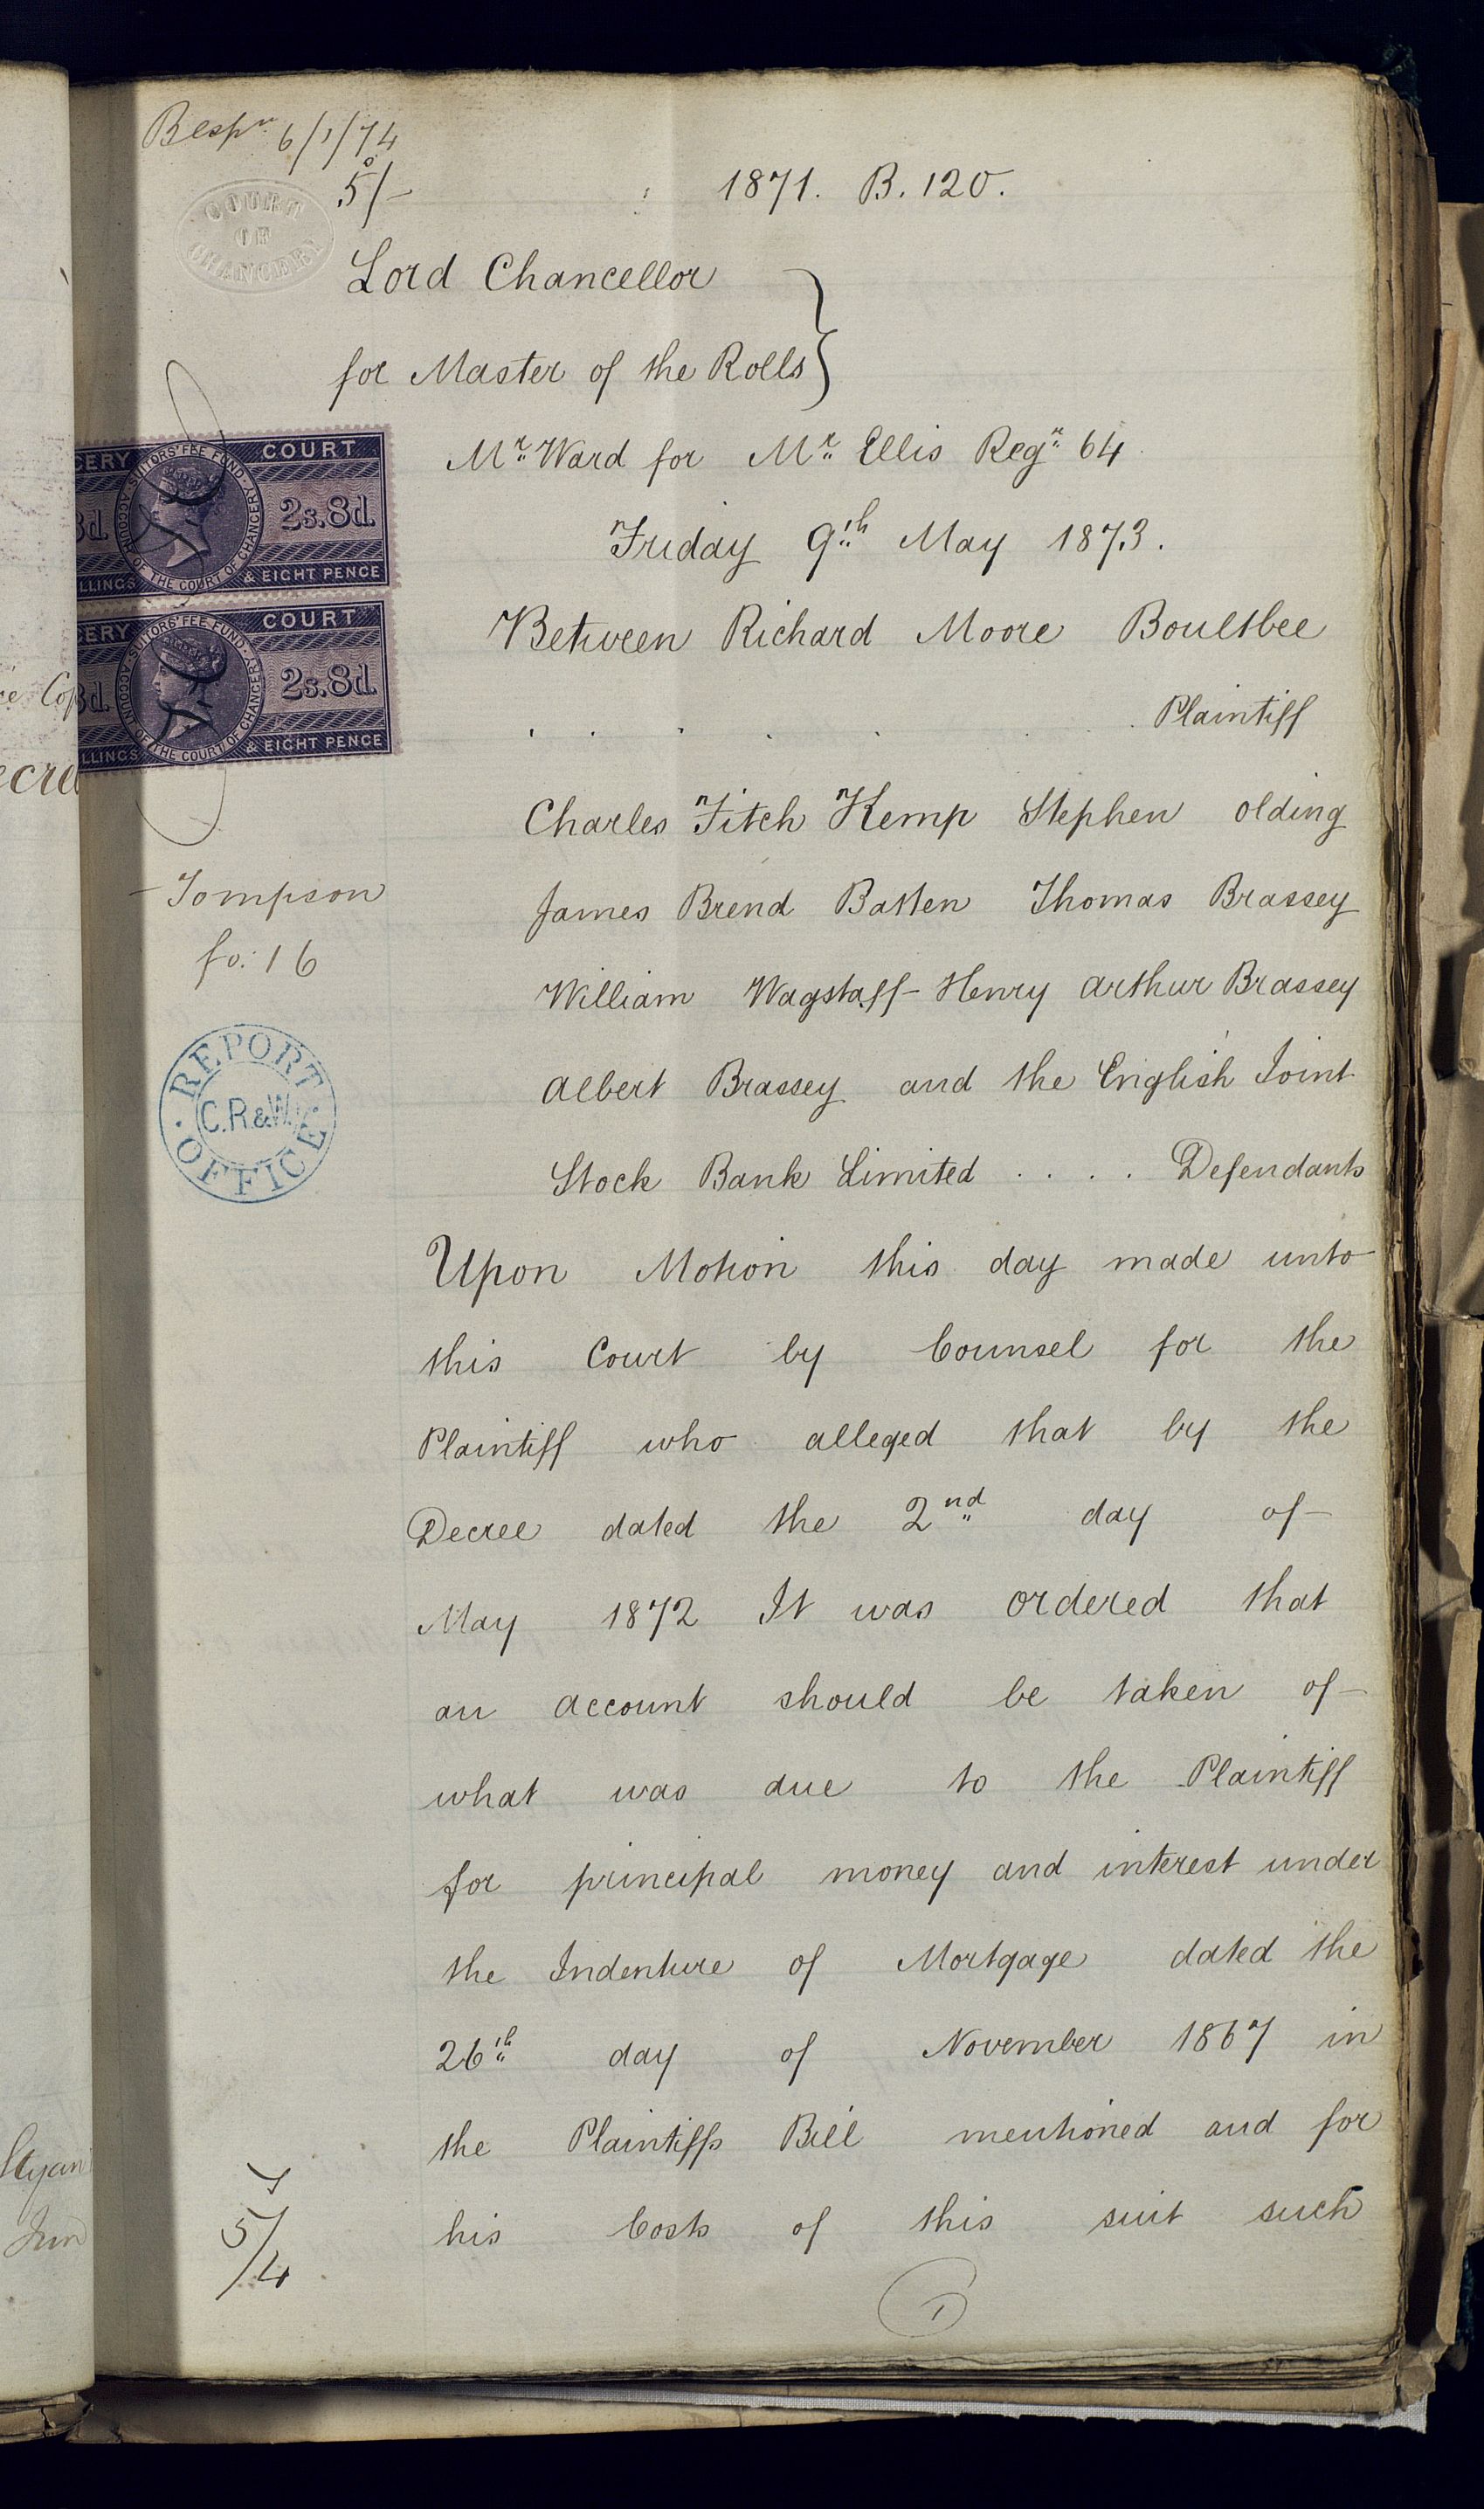 6/1/74
5/-
1871. B. 120.
COURT
OF
CHANCERY
Lord Chancellor
for Master of the Rolls
Mr. Ward for Mr. Ellis Regr. 64
Friday 9th May 1873.
CERY COURT
SUITORS' FEE FUND ACCOUNT OF THE COURT OF CHANCERY
2s. 8d.
LLINGS & EIGHT PENCE
CERY COURT
SUITORS' FEE FUND ACCOUNT OF THE COURT OF CHANCERY
2s. 8d.
LLINGS & EIGHT PENCE
Between Richard Moore Boultbee
. . . . . . . . Plaintiff
Charles Fitch Kemp Stephen olding
Tompson
fo: 16
James Brend Batten Thomas Brassey
William Wagstaff Henry arthur Brassey
REPORT OFFICE
C.R.&W.
albert Brassey and the English Joint
Stock Bank Limited . . . . Defendants
Upon Motion this day made unto
this Court by Counsel for the
Plaintiff who alleged that by the
Decree dated the 2nd day of
May 1872 It was ordered that
an account should be taken of
what was due to the Plaintiff
for principal money and interest under
the Indenture of Mortgage dated the
26th day of November 1867 in
the Plaintiffs Bill mentioned and for
his Costs of this suit such
5/4
1